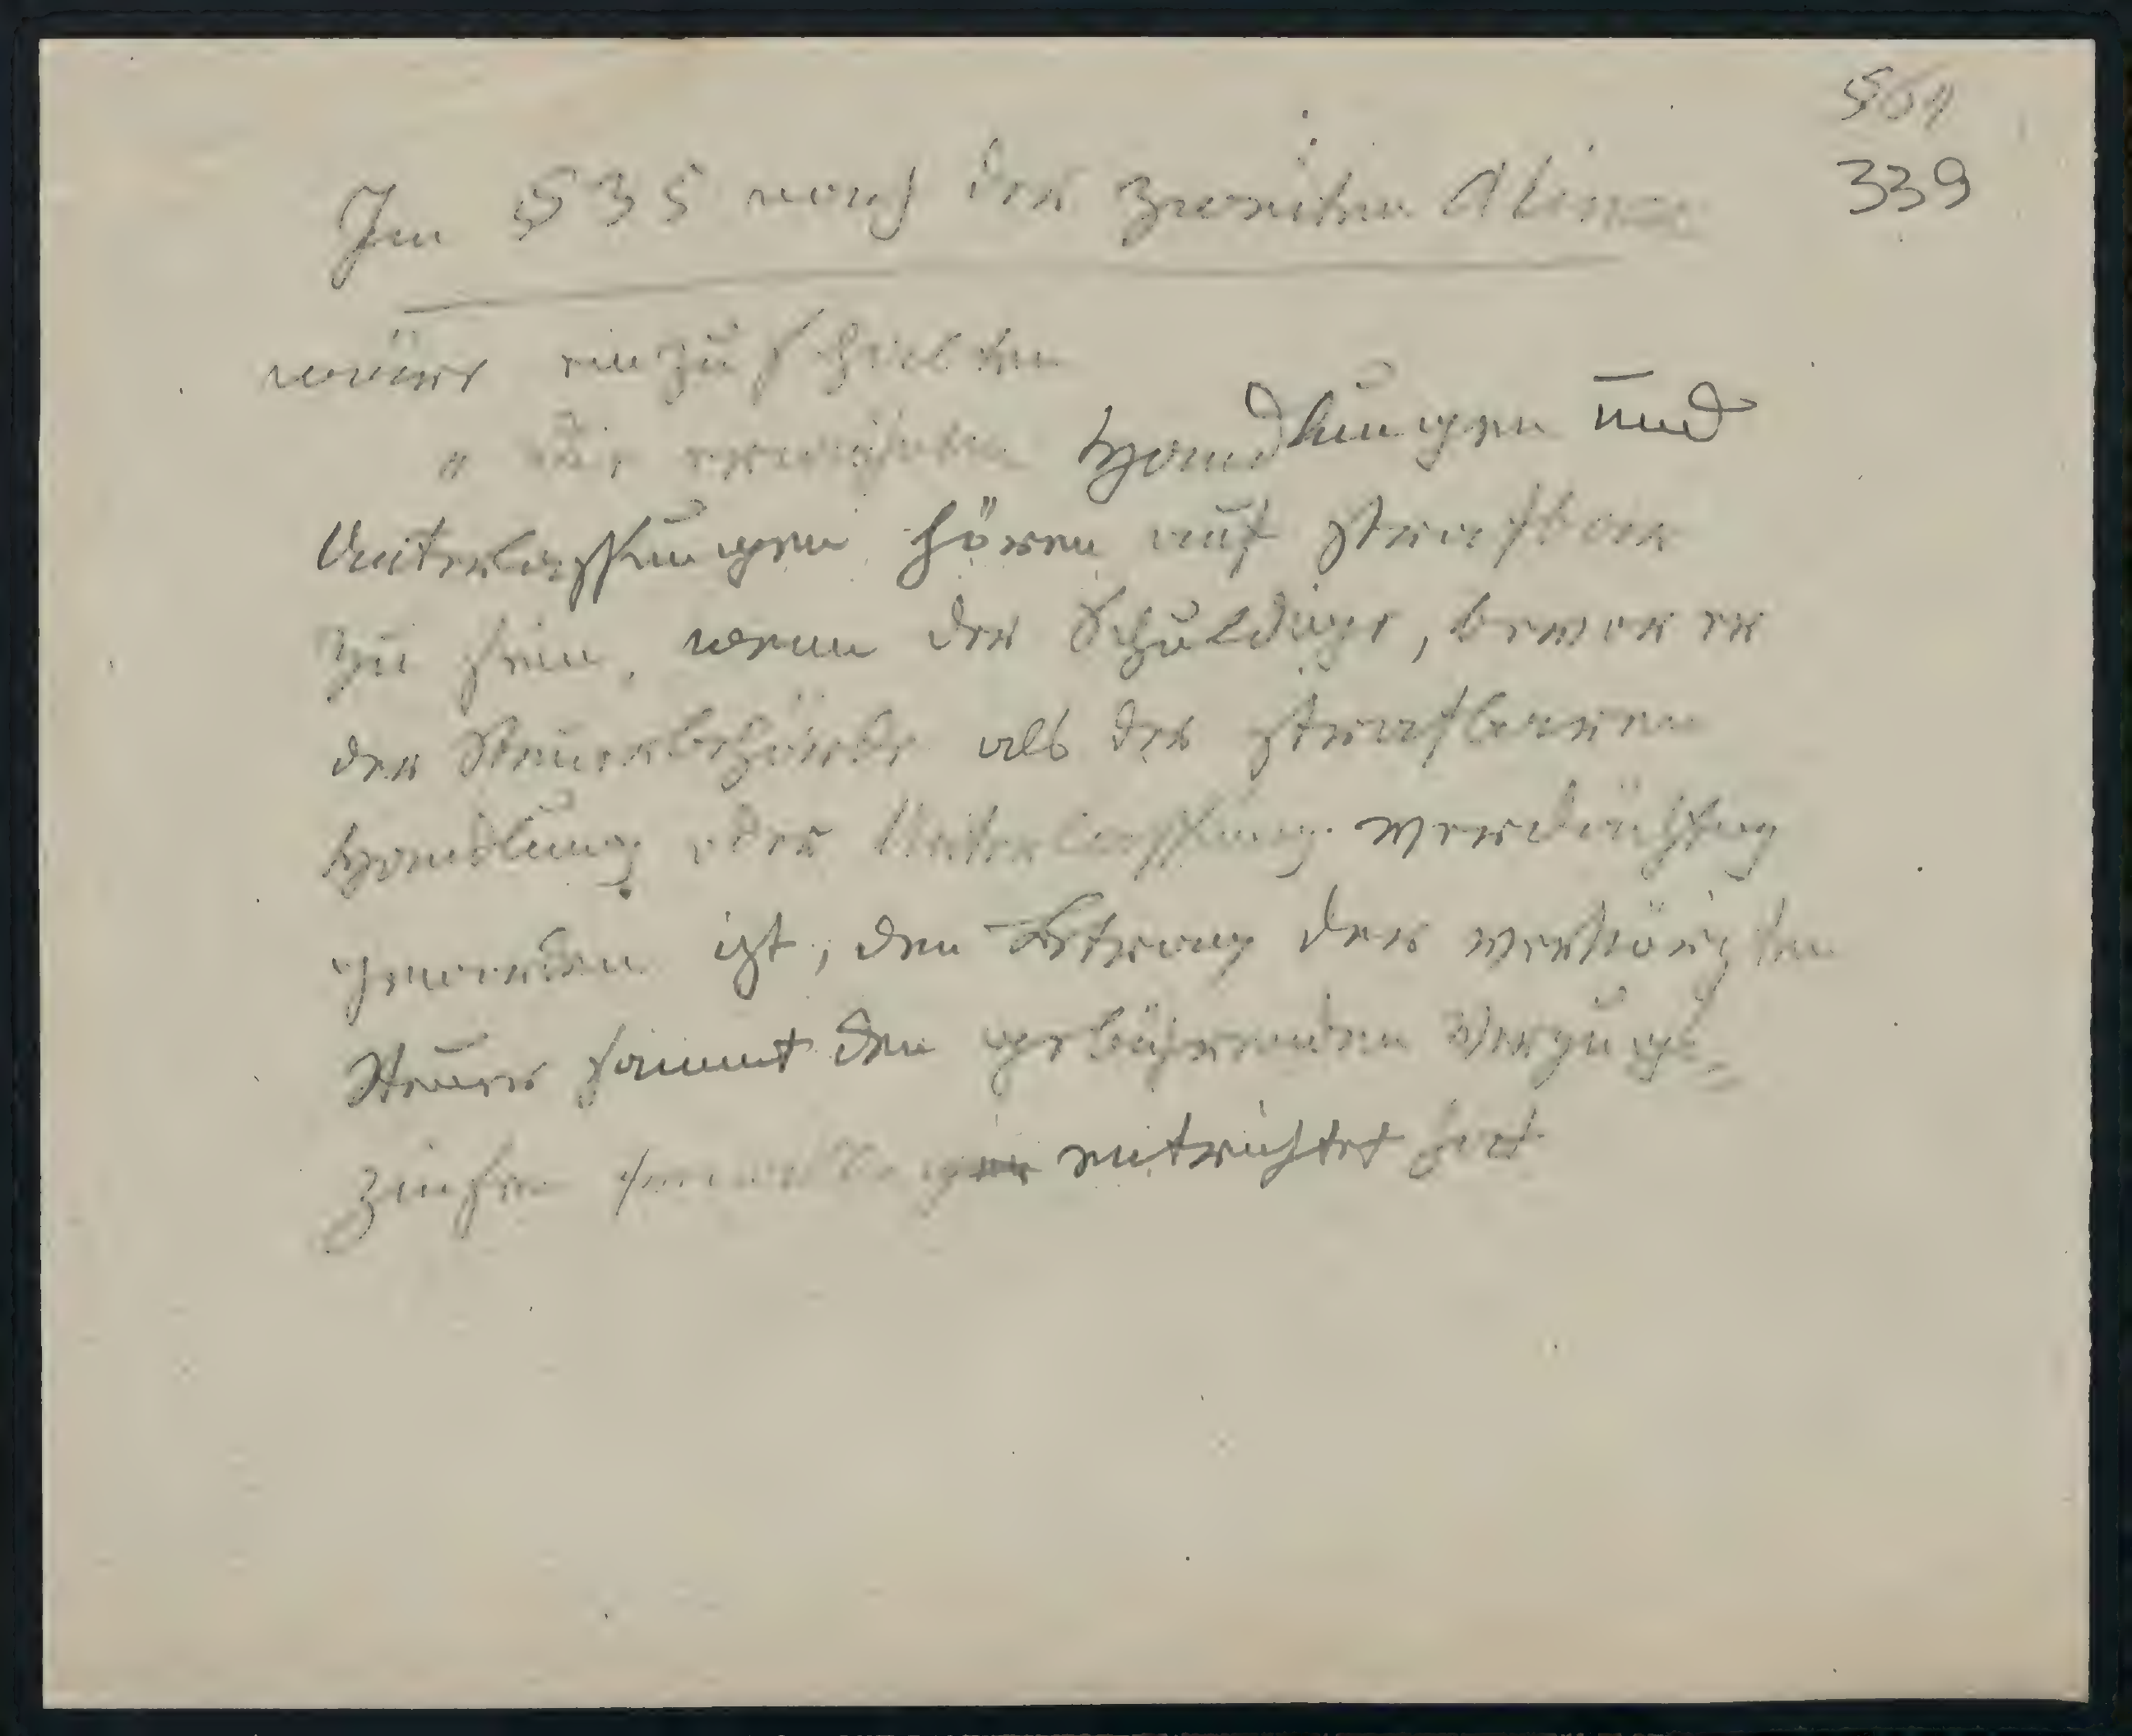 561
339
Im § 35 nach der zweiten Alinea
wäre einzuschalten
„ Die erwähnten Handlungen und
Unterlassungen hören auf strafbar
zu sein, wenn der Schuldige, bevor er
der Steuerbehörde als der strafbaren
Handlung oder Unterlassung verdächtig
geworden ist, den Betrag der verkürzten
Steuer sammt den gebührenden Verzugs-
zinsen entrichtet hat